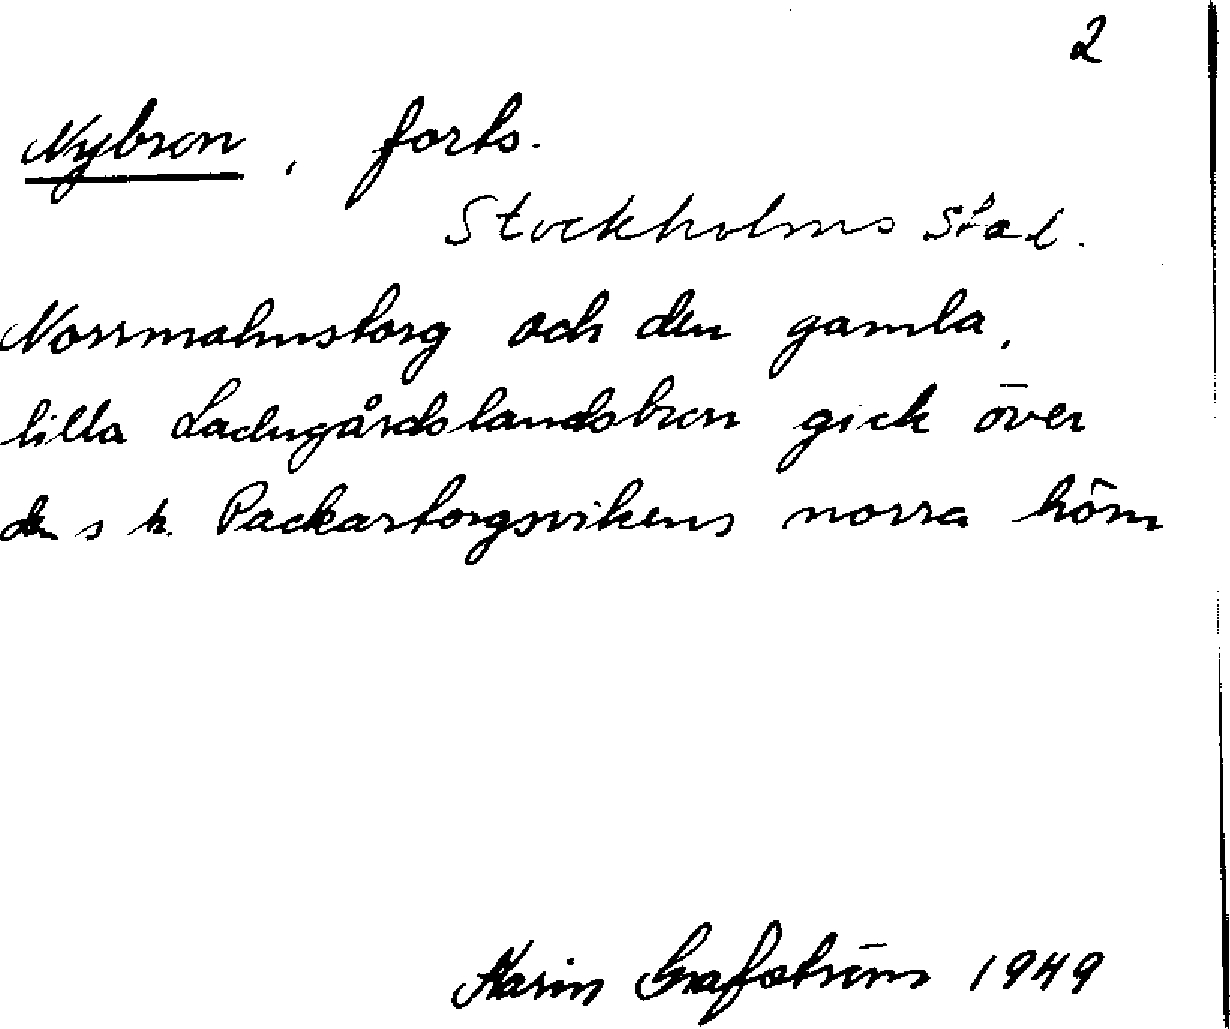 2
Nybron, forts.
Stockholms stad.
Norrmalmstorg och den gamla,
lilla Ladugårdslandsbron gick över
den s k Packartorgsvikens norra hörn
Karin Grafström 1949